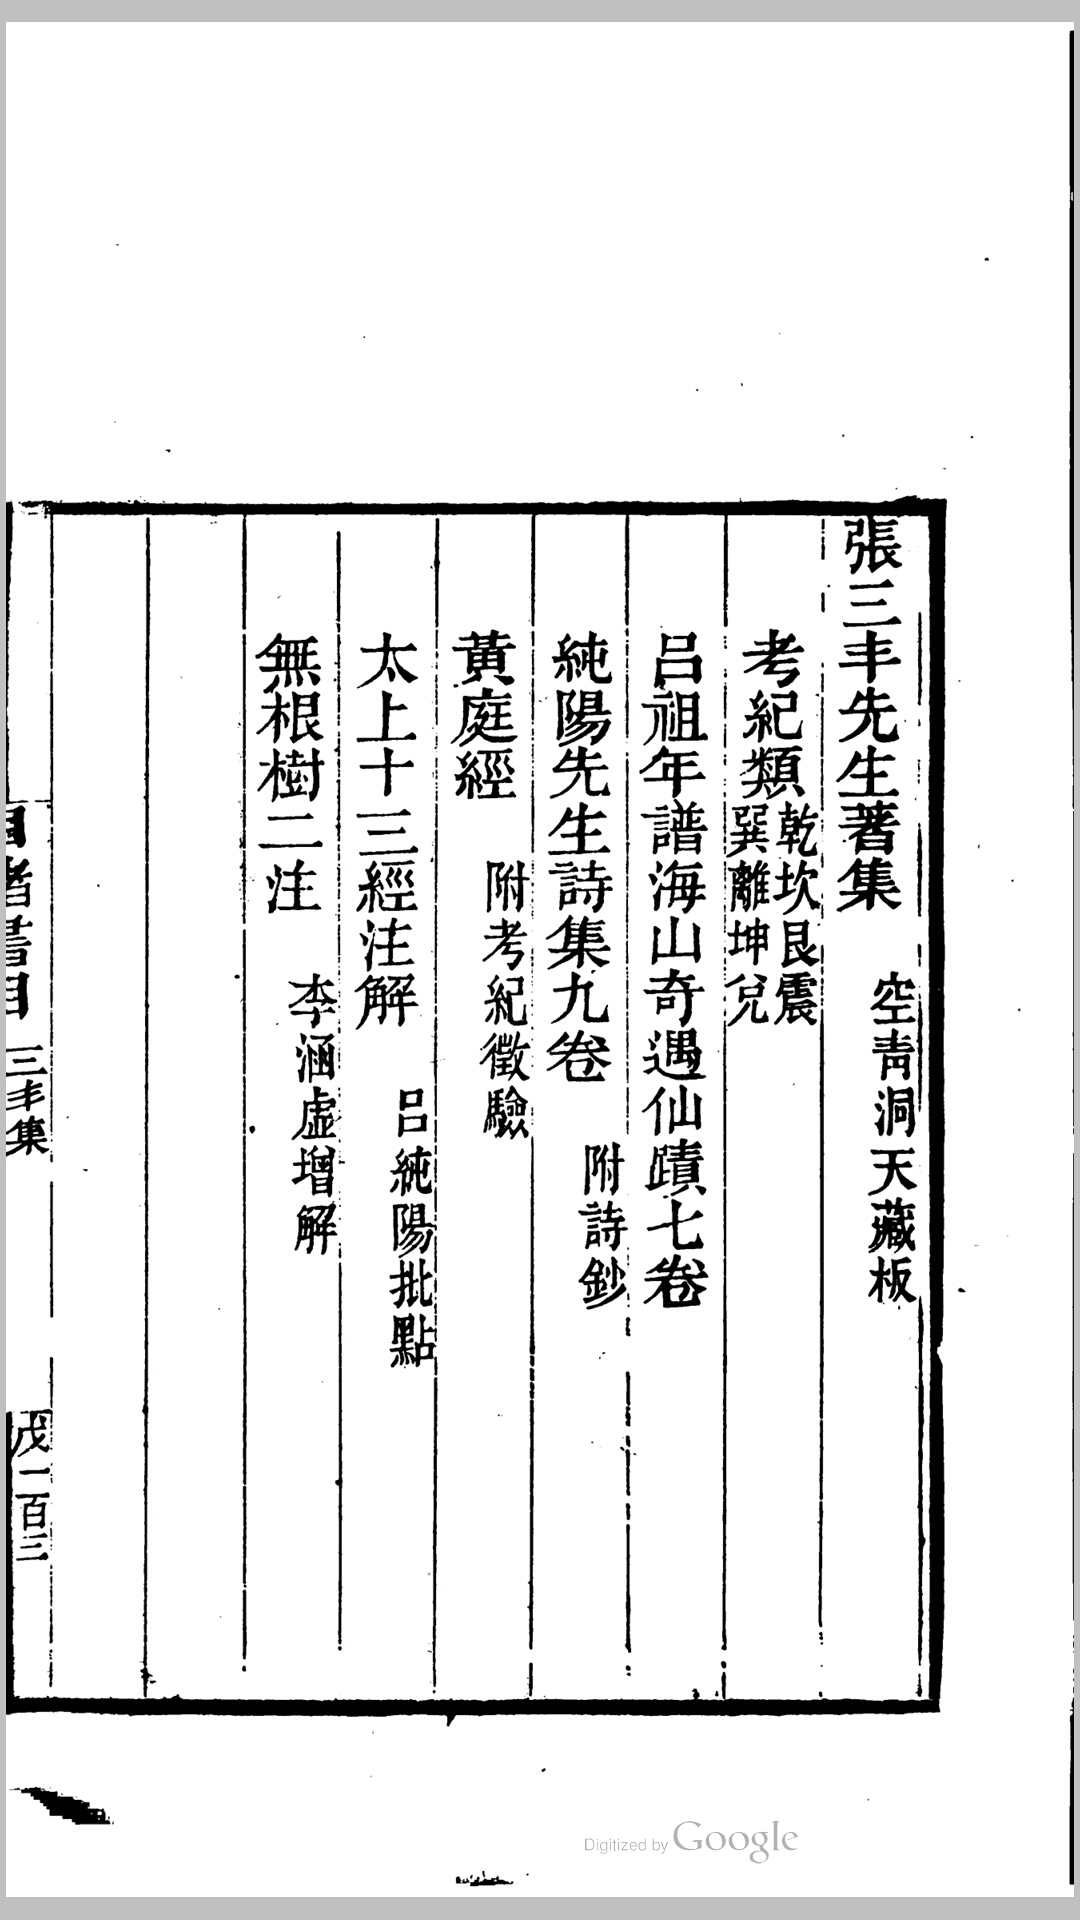 張三丰先生著集　空青洞天藏板
考紀類乾坎艮震
巽離坤兌
呂祖年譜海山奇遇仙蹟七卷
純陽先生詩集九卷　附詩鈔
黃庭經　附考紀徵驗
太上十三經注解　呂純陽批點
無根樹二注　李涵虛增解
書目
三丰集
Digitized by Google